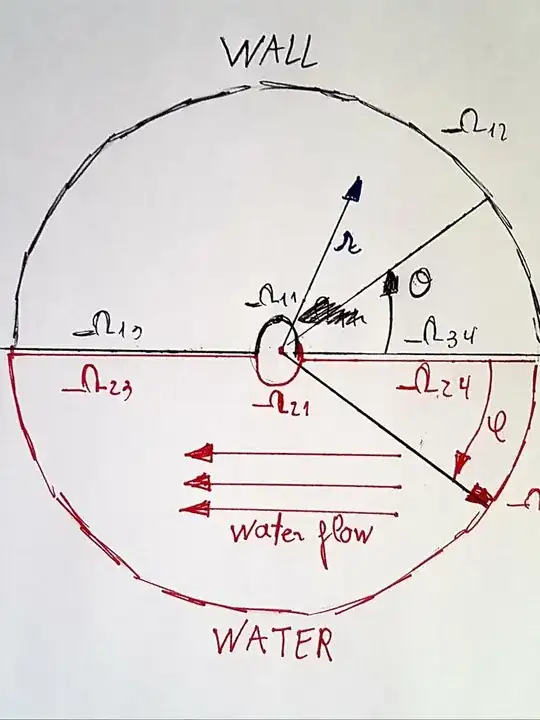 WALL
Ω12
r
Ω11
θ
Ω13
Ω34
Ω23
Ω24
Ω21
φ
water flow
WATER